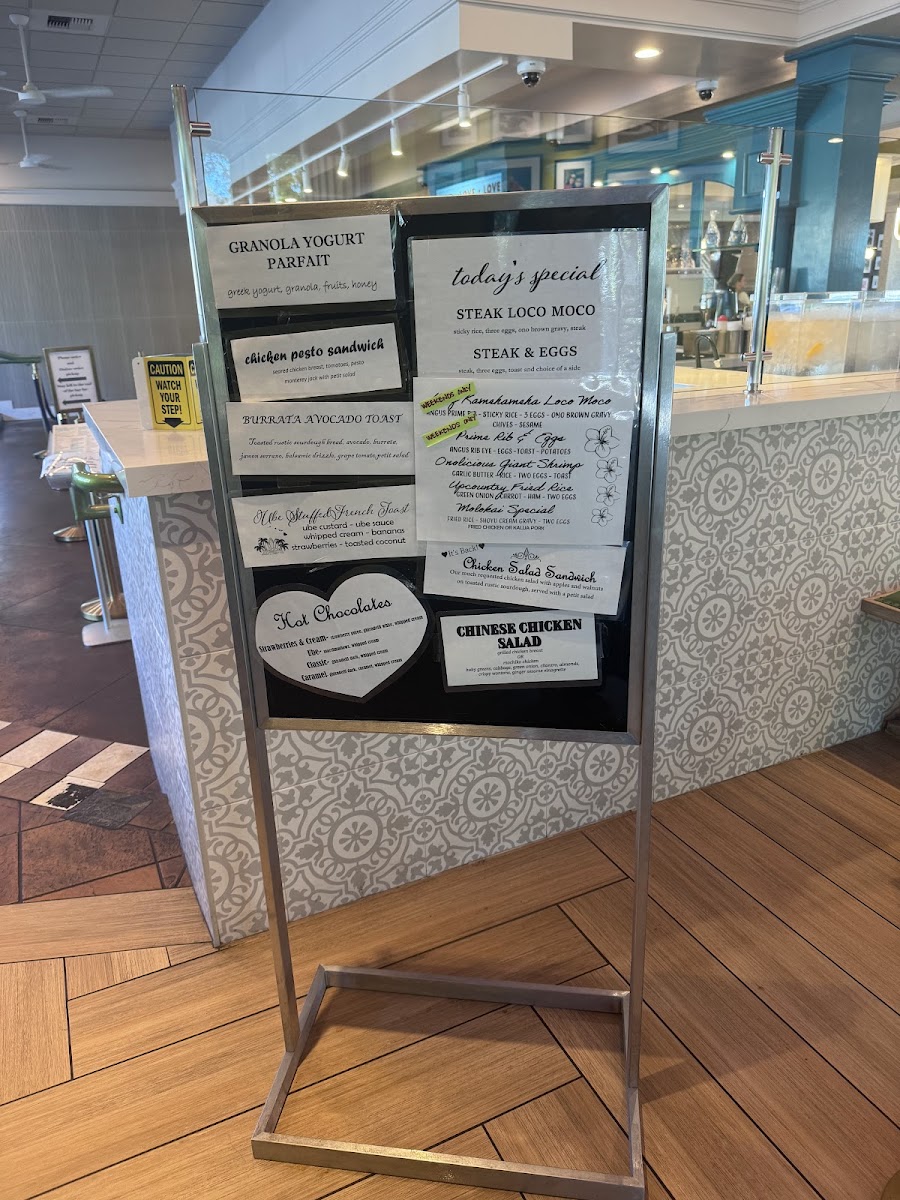 GRANOLA YOGURT
PARFAIT
greek yogurt, granola, fruits, honey
chicken pesto sandwich
seared chicken breast, tomatoes, pesto
monterey jack with petit salad
BURRATA AVOCADO TOAST
Toasted rustic sourdough bread, avocado, burrata,
jamon serrano, balsamic drizzle, grape tomato, petit salad
Ube Stuffed French Toast
ube custard - ube sauce
whipped cream - bananas
strawberries - toasted coconut
Hot Chocolates
Strawberries & Cream- strawberry puree, ghirardelli white, whipped cream
Elfe- marshmallows, whipped cream
Classic- ghirardelli dark, whipped cream
Caramel ghirardelli dark, caramel, whipped cream
today's special
STEAK LOCO MOCO
sticky rice, three eggs, ono brown gravy, steak
STEAK & EGGS
steak, three eggs, toast and choice of a side
WEEKENDS ONLY
Kamehameha Loco Moco
ANGUS PRIME RIB - STICKY RICE - 3 EGGS - ONO BROWN GRAVY
CHIVES - SESAME
WEEKENDS ONLY
Prime Rib & Eggs
ANGUS RIB EYE - EGGS - TOAST - POTATOES
Onolicious Giant Shrimp
GARLIC BUTTER - RICE - TWO EGGS - TOAST
Upcountry Fried Rice
GREEN ONION - CARROT - HAM - TWO EGGS
Molokai Special
FRIED RICE - SHOYU CREAM GRAVY - TWO EGGS
FRIED CHICKEN OR KALUA PORK
It's Back!
Chicken Salad Sandwich
Our much requested chicken salad with apples and walnuts
on toasted rustic sourdough, served with a petit salad
CHINESE CHICKEN
SALAD
grilled chicken breast
OR
mochiko chicken
baby greens, cabbage, green onion, cilantro, almonds,
crispy wontons, ginger sesame vinaigrette
CAUTION
WATCH
YOUR
STEP!
LOVE